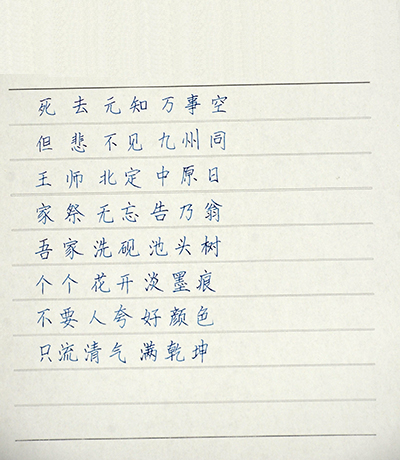 死去元知万事空
但悲不见九州同
王师北定中原日
家祭无忘告乃翁
吾家洗砚池头树
个个花开淡墨痕
不要人夸好颜色
只流清气满乾坤